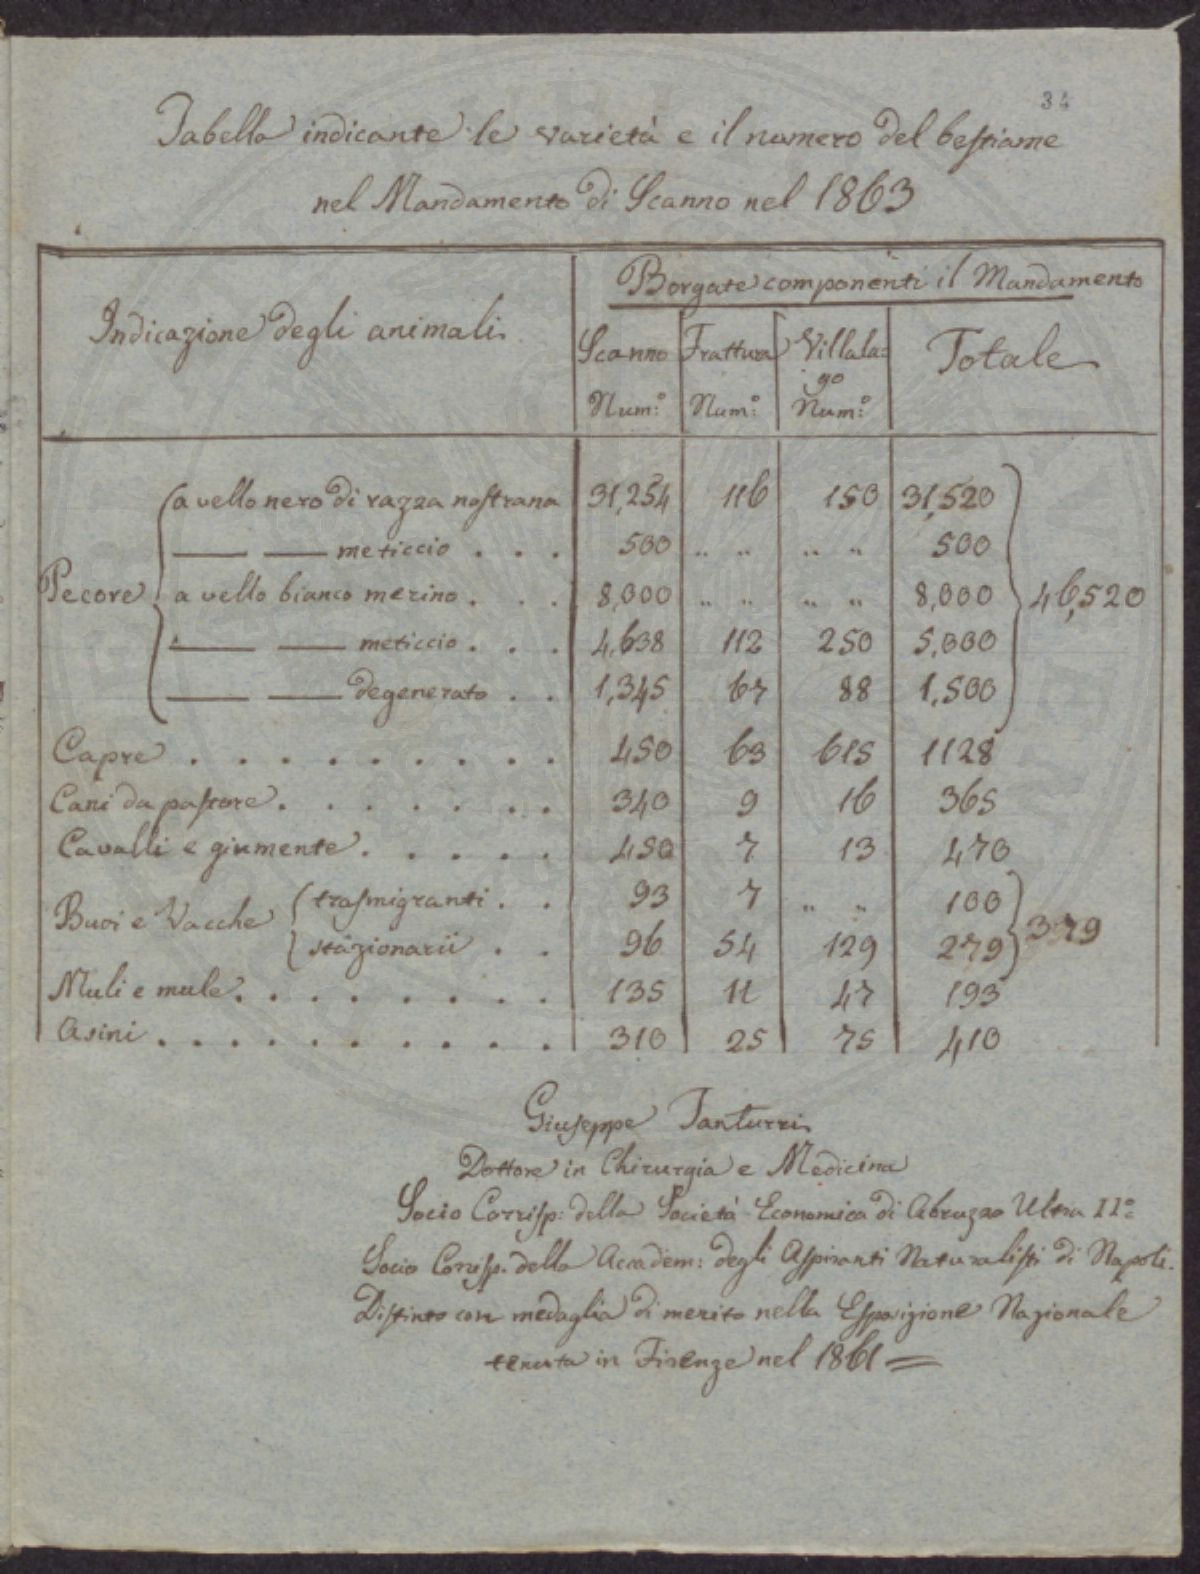 34
Tabella indicante le varietà e il numero del bestiame
nel Mandamento di Scanno nel 1863
Indicazione degli animali
Borgate componenti il Mandamento
Scanno Frattura Villala= Totale
go
Num:º Num:º Num:º
Pecore
a vello nero di razza nostrana 31,254 116 150 31,520
—— —— meticcio . . . 500 „ „ „ „ 500
a vello bianco merino . . . 8,000 „ „ „ „ 8,000 46,520
—— —— meticcio . . . 4,638 112 250 5,000
—— —— degenerato . . 1,345 67 88 1,500
Capre . . . . . . . . . . 450 63 615 1128
Cani da pastore . . . . . . . . 340 9 16 365
Cavalli e giumente . . . . . 450 7 13 470
Buoi e Vacche
trasmigranti . . 93 7 „ „ 100
stazionarii . . 96 54 129 279 379
Muli e mule . . . . . . . . . 135 11 47 193
Asini . . . . . . . . . . . 310 25 75 410
Giuseppe Tanturri
Dottore in Chirurgia e Medicina
Socio Corrisp: della Società Economica di Abruzzo Ultra IIº
Socio Corrisp. della Accadem: degli Aspiranti Naturalisti di Napoli.
Distinto con medaglia di merito nella Esposizione Nazionale
tenuta in Firenze nel 1861 =